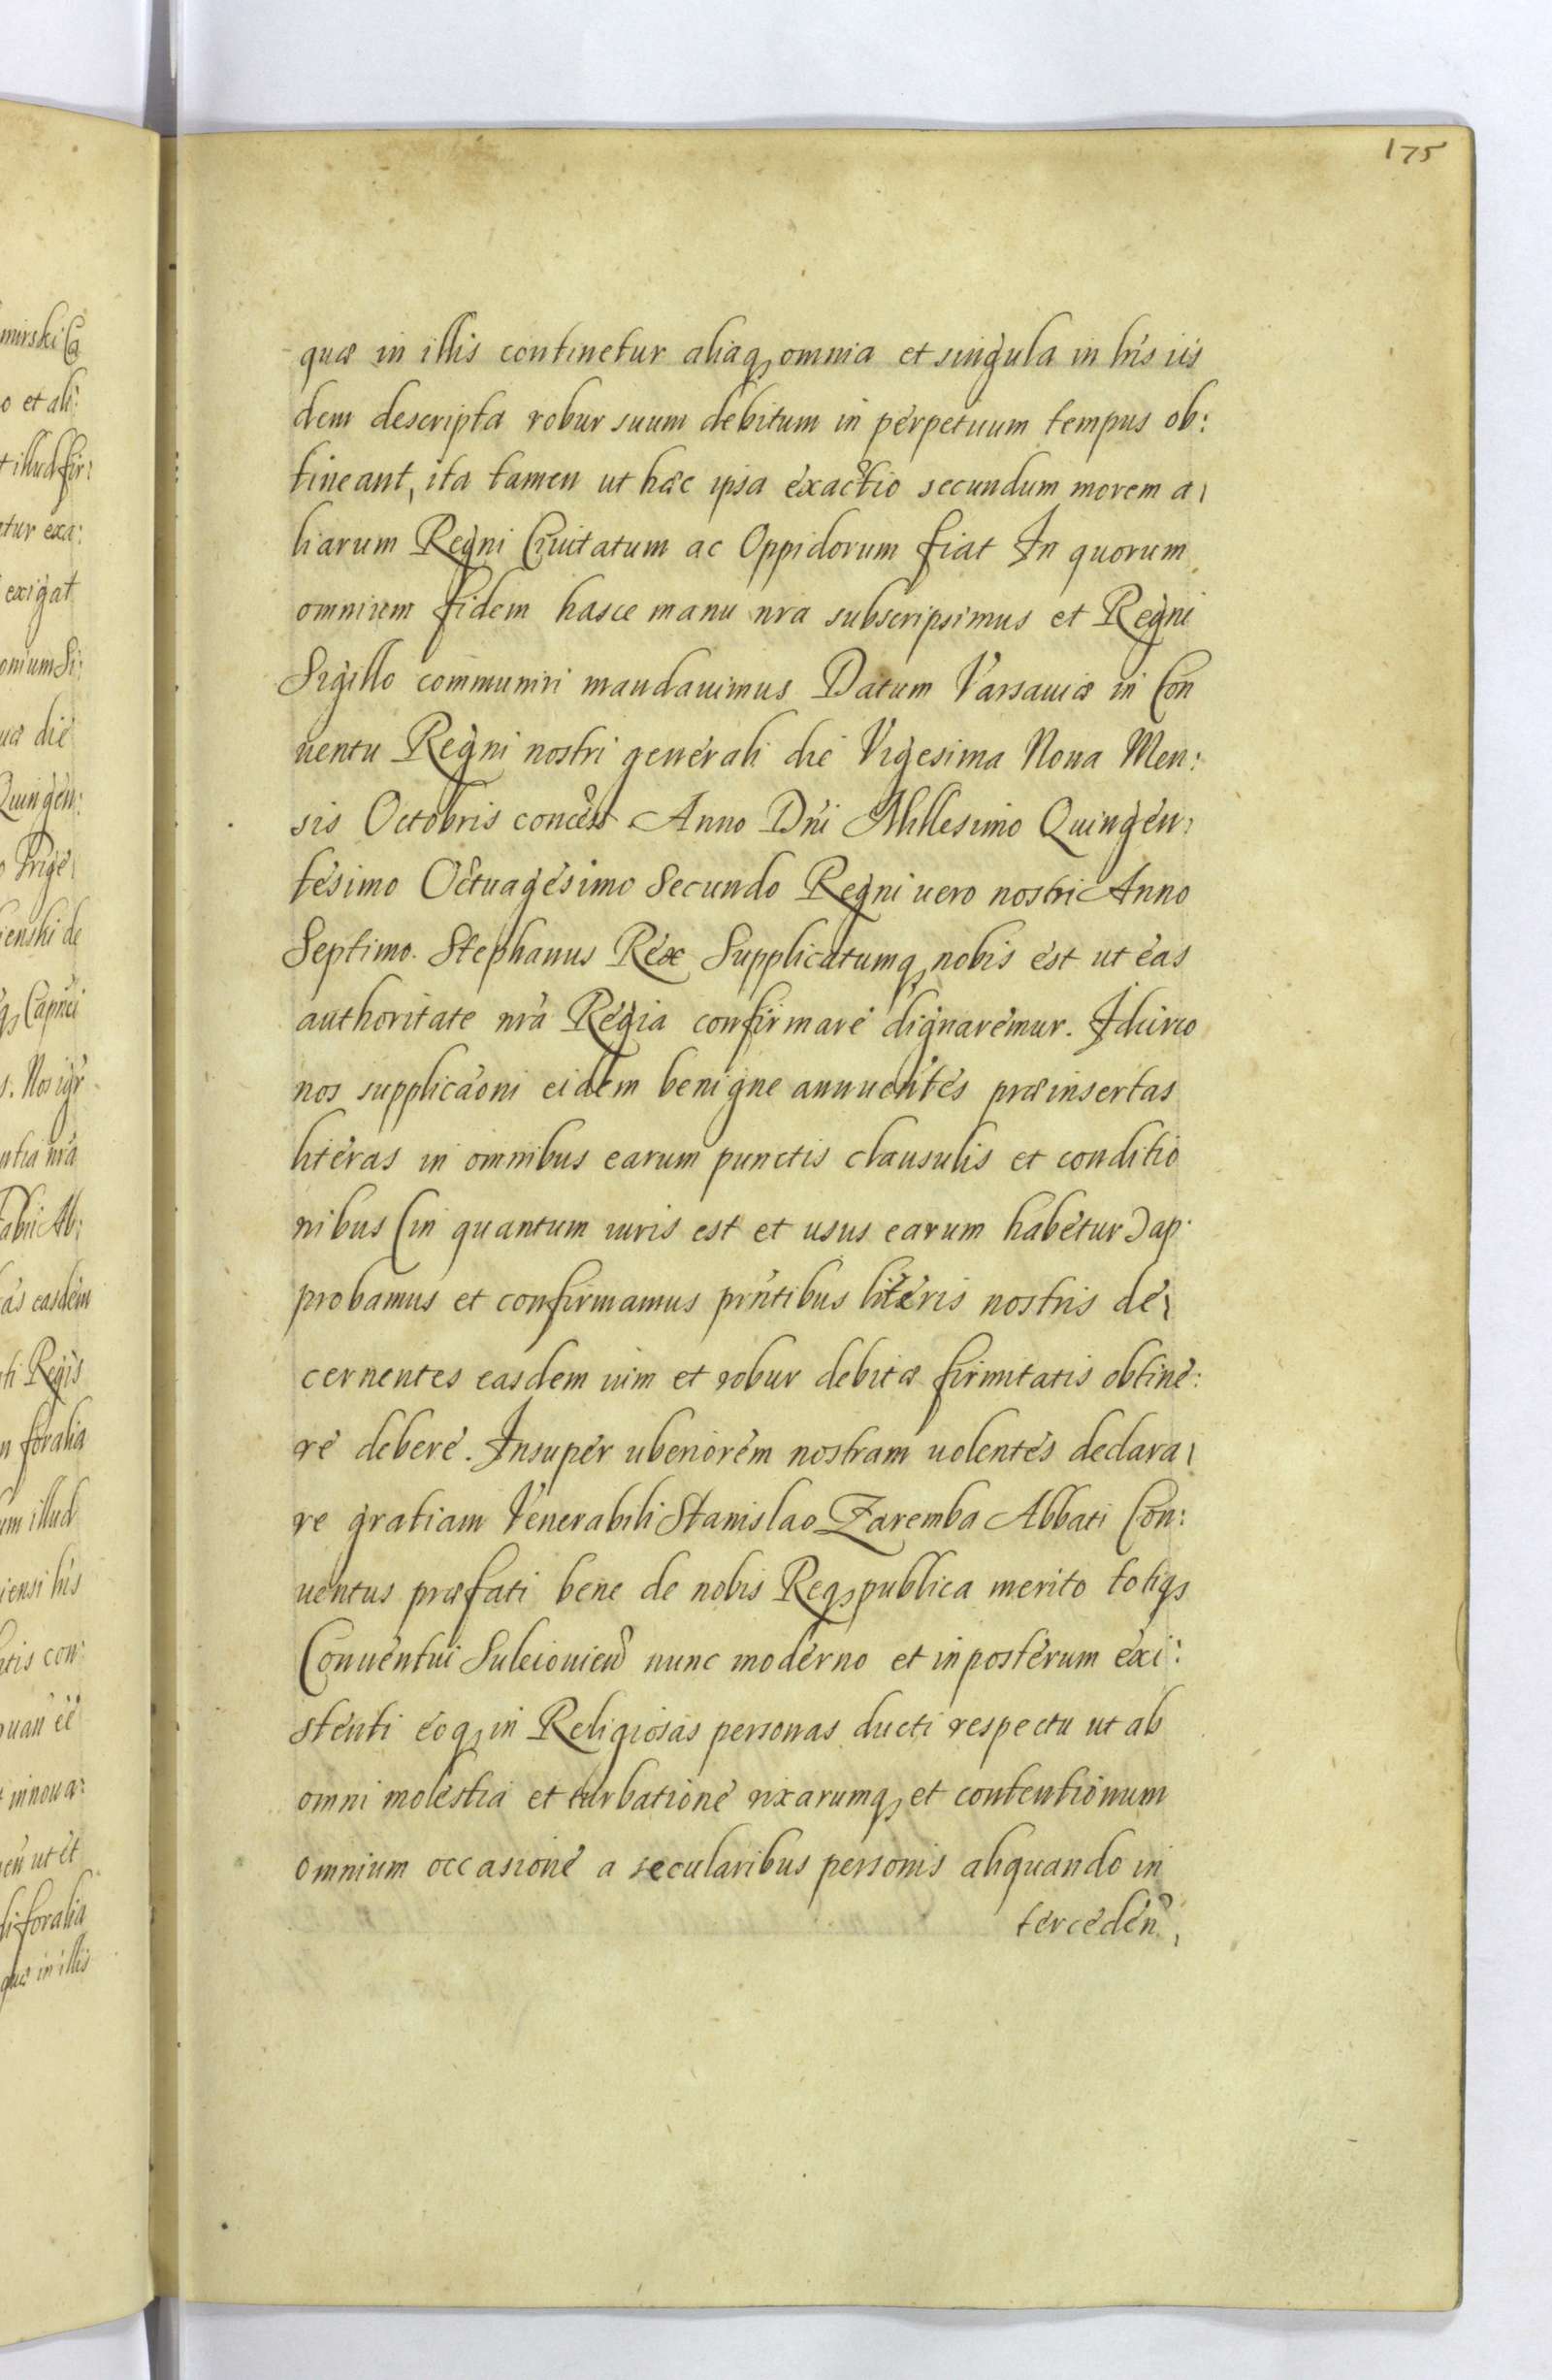 175
quæ in illis continetur aliaq, omnia et singula in his iis
dem descripta robur suum debitum in perpetuum tempus ob:
tineant, ita tamen ut hæc ipsa exactio secundum morem a,
liarum Regni Civitatum ac Oppidorum fiat In quorum
omnium fidem hasce manu nra subscripsimus et Regni
Sigillo communiri mandauimus Datum Varsauiæ in Con
uentu Regni nostri generali die Vigesima Noua Men:
sis Octobris Anno Dni Millesimo Quingen,
tesimo Octuagesimo Secundo Regni uero nostri Anno
Septimo. Stephanus Rex Supplicatumq, nobis est ut eas
authoritate nrã Regia confirmare dignaremur. Idcirco
nos supplicãoni eidem benigne annuentes præinsertas
literas in omnibus earum punctis clausulis et conditio
nibus (in quantum iuris est et usus earum habetur) ap:
probamus et confirmamus pñtibus literis nostris de,
cernentes easdem uim et robur debitæ firmitatis obtine:
re debere. Insuper uberiorem nostram uolentes declara,
re gratiam Venerabili Stanislao Zaremba Abbati Con:
uentus præfati bene de nobis Req, publica merito totiq,
Conuentui Suleiouien nunc moderno et inposterum exi:
stenti eoq, in Religiosas personas ducti respectu ut ab
omni molestia et turbatione rixarumq, et contentionum
omnium occasione a secularibus personis aliquando in
terceden,
mirski Ca
o et ali:
t illud fir:
etur exa:
exigat
onium Si:
uæ die
Quingen:
o Trige,
ienski de
q, Capñci
s. Nos igr
ntia nrã
Ab:
as easdem
ti Regis
n foralia
um illud
iensi his
tis con:
uan ee
t innoua:
en ut et
li foralia
quæ in illis